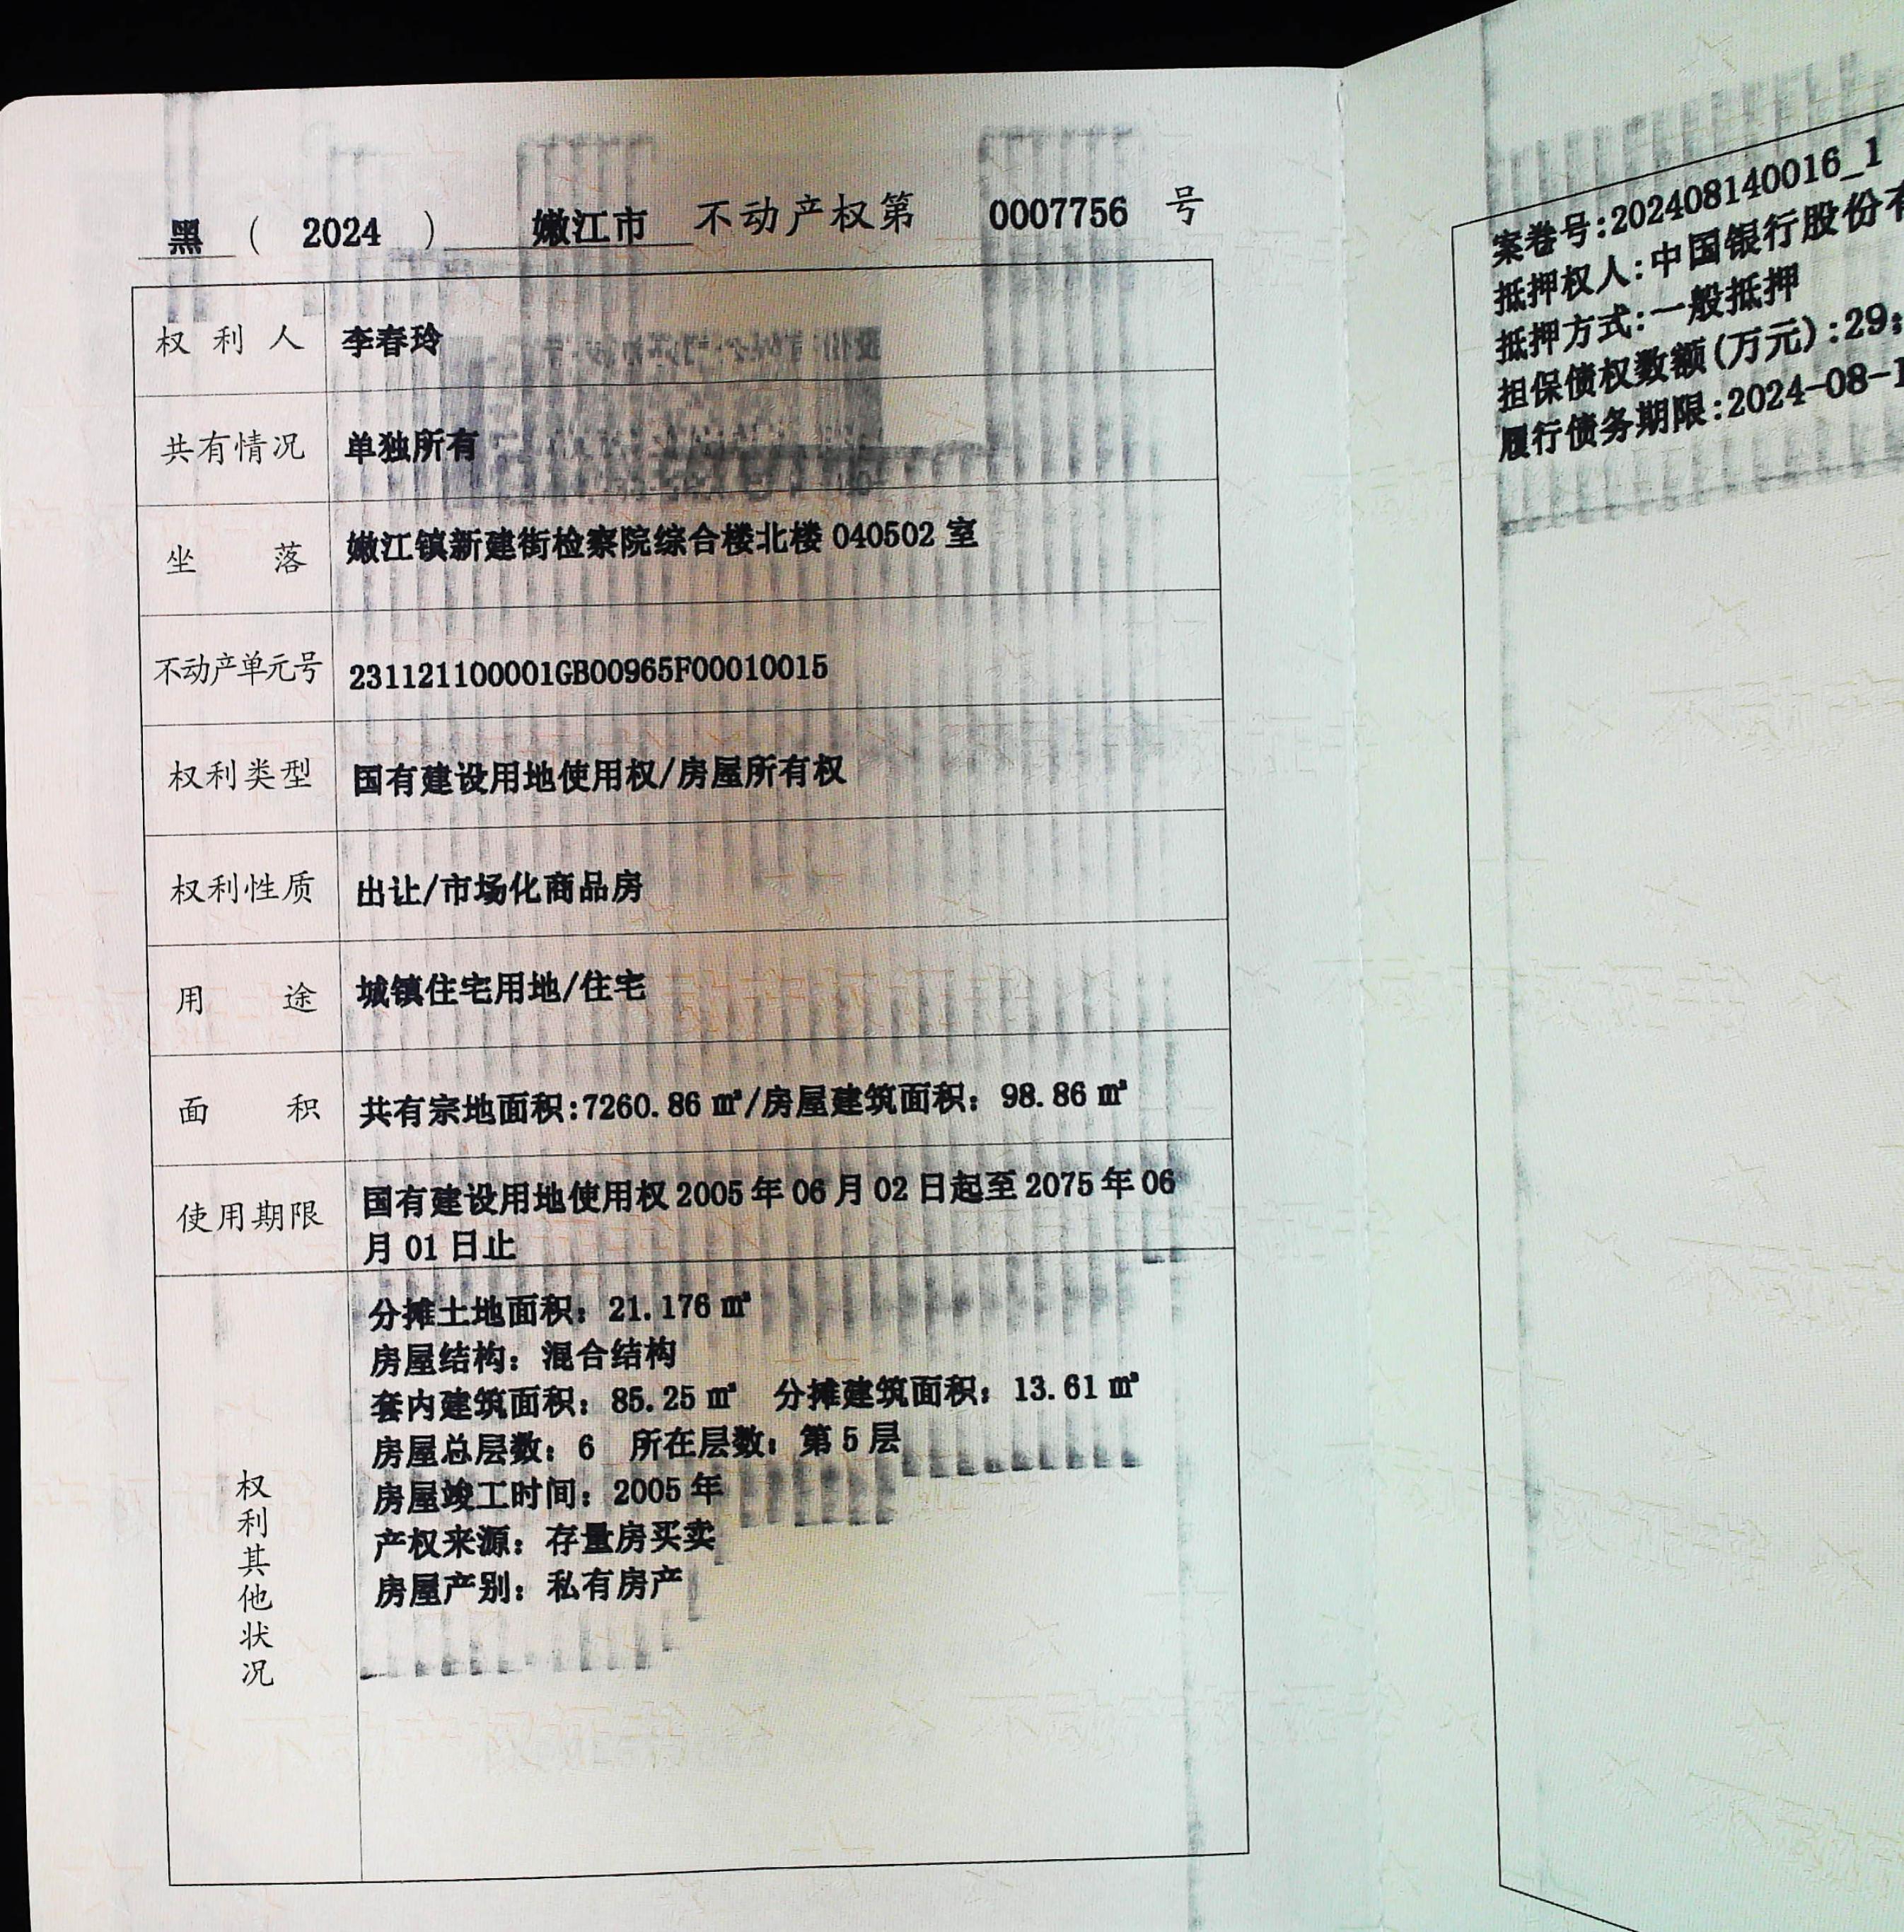 黑 ( 2024 ) 嫩江市 不动产权第 0007756 号
权利人 李春玲
共有情况 单独所有
坐落 嫩江镇新建街检察院综合楼北楼 040502 室
不动产单元号 231121100001GB00965F00010015
权利类型 国有建设用地使用权/房屋所有权
权利性质 出让/市场化商品房
用途 城镇住宅用地/住宅
面积 共有宗地面积:7260.86 ㎡/房屋建筑面积: 98.86 ㎡
使用期限 国有建设用地使用权 2005 年 06 月 02 日起至 2075 年 06
月 01 日止
权利其他状况
分摊土地面积: 21.176 ㎡
房屋结构: 混合结构
套内建筑面积: 85.25 ㎡ 分摊建筑面积: 13.61 ㎡
房屋总层数: 6 所在层数: 第 5 层
房屋竣工时间: 2005 年
产权来源: 存量房买卖
房屋产别: 私有房产
案卷号:202408140016_1
抵押权人:中国银行股份有
抵押方式:一般抵押
担保债权数额(万元):29;
履行债务期限:2024-08-1